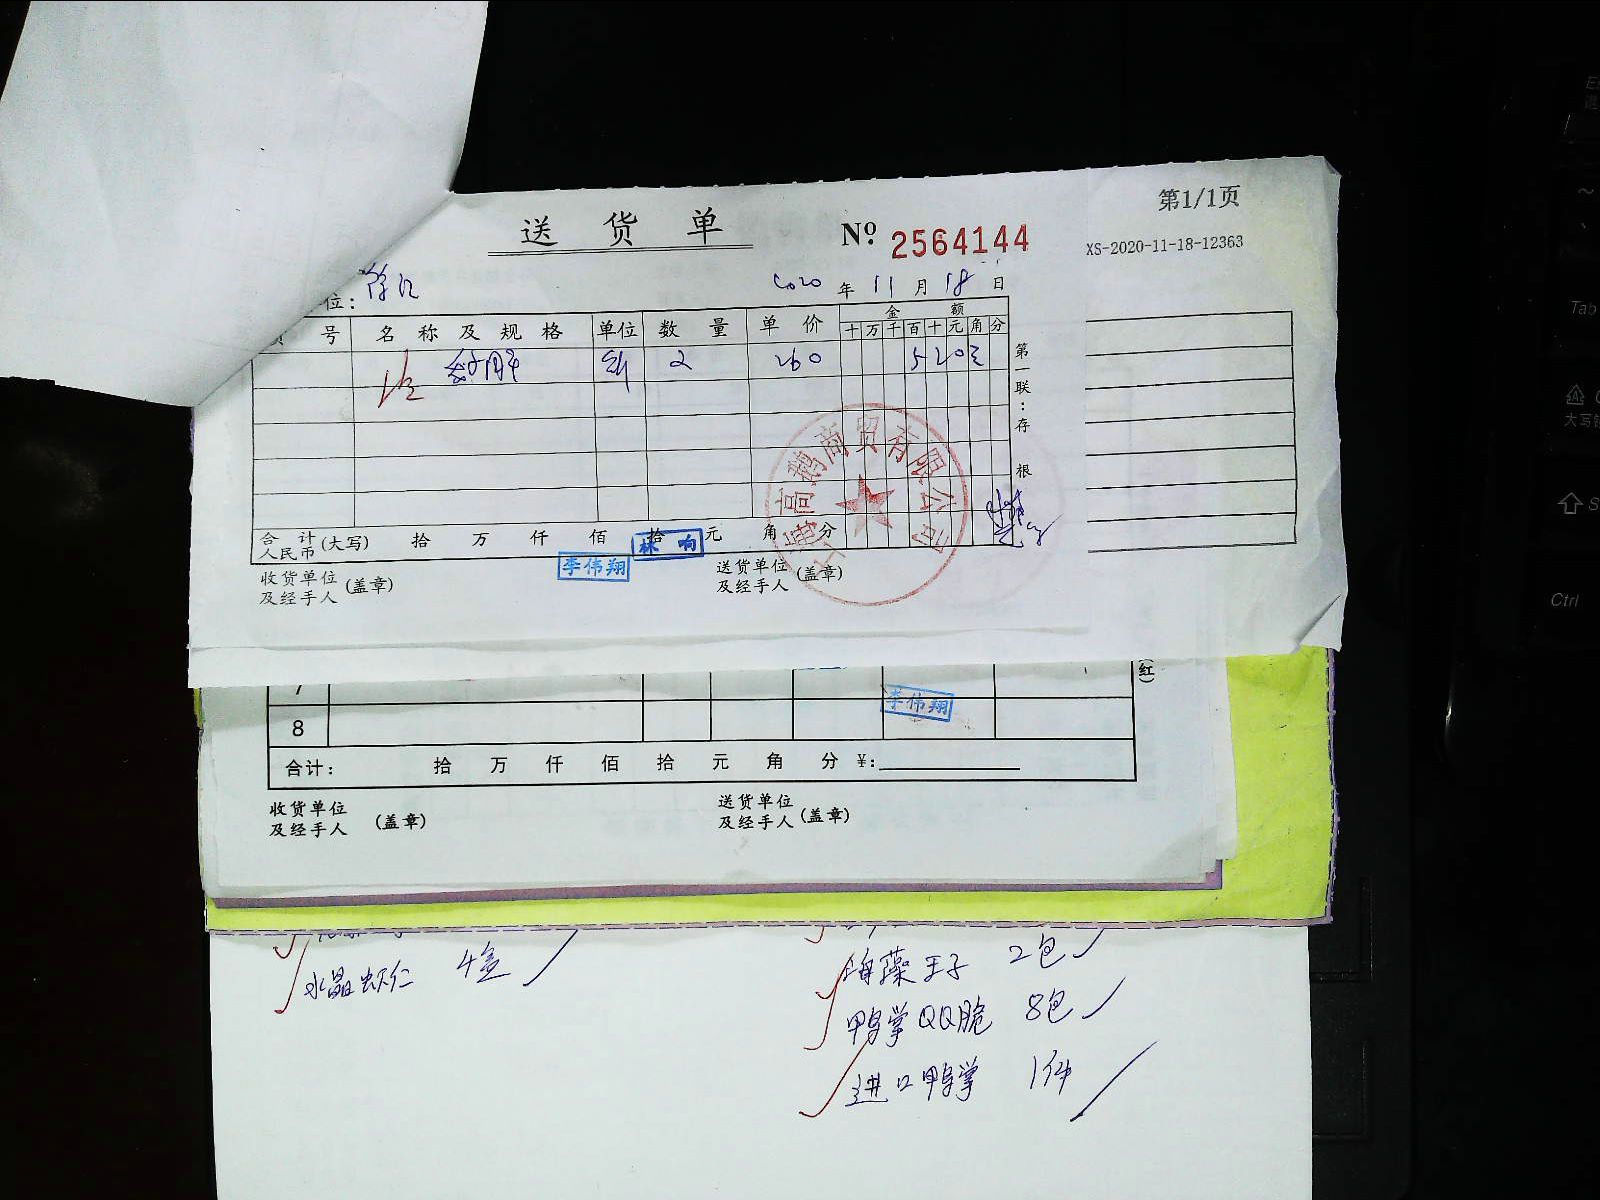 第1/1页
送货单 № 2564144
XS-2020-11-18-12363
位:
2020 年 11 月 18 日
号 名称及规格 单位 数量 单价 金额
十 万 千 百 十 元 角 分
2 260 520
第一联:存根
合计人民币(大写) 拾 万 仟 佰 拾 元 角 分
林响
李伟翔
收货单位及经手人(盖章) 送货单位及经手人(盖章)
上海高鹅商贸有限公司
(红)
7
李伟翔
8
合计: 拾 万 仟 佰 拾 元 角 分 ¥:
收货单位及经手人 (盖章) 送货单位及经手人(盖章)
水晶虾仁 4盒
海藻王子 2包
鸭掌QQ脆 8包
进口鸭掌 1件
Tab
大写
Ctrl